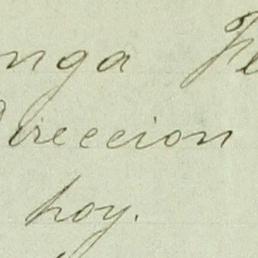 nga
direccion
hoy.